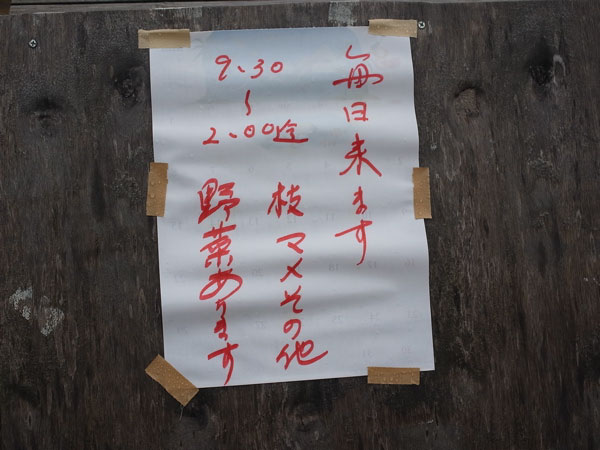 毎日来ます
9:30
〜
2:00迄
枝マメその他
野菜あります